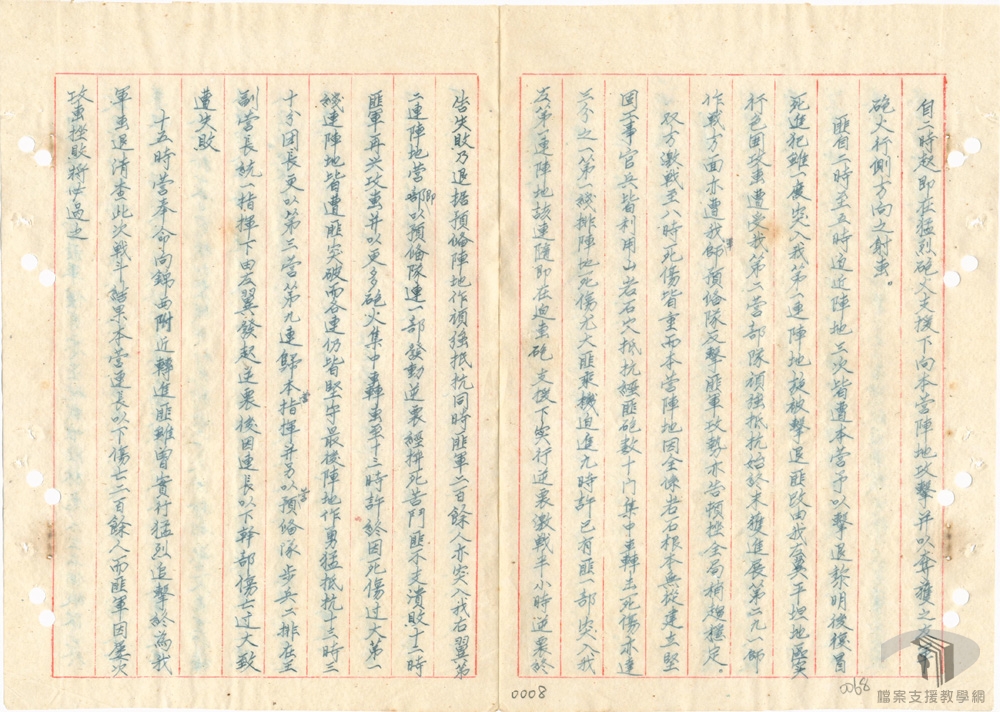 自一時起即在猛烈砲火支援下向本營陣地攻擊并以奪獲之
砲火行側方向之射擊。
匪自二時至五時迫近陣地三次皆遭本營予以擊退黎明後復冒
死進犯雖一度突入我第一連陣地旋被擊退匪改由我左翼平坦地區實
行包圍攻擊遭受我第二營部隊頑強抵抗始終未獲進展第二九一師
作戰方面亦遭我師預備隊反擊匪軍攻勢亦告頓挫全局稍趨穩定。
双方激戰至八時死傷皆重而本營陣地因全係岩石根本無從建立堅
固工事官兵皆利用山岩石穴抵抗經匪砲數十門集中轟击死傷亦達
三分之一第一線排陣地死傷尤大匪乘機迫進九時許已有匪一部突入我
左第一連陣地該連隨即在迫擊砲支援下实行逆襲激戰半小時逆襲終
告失敗乃退据預備陣地作頑強抵抗同時匪軍二百餘人亦突入我右翼第
二連陣地當即以預備隊連一部發動逆襲經拚死苦鬥匪不支潰敗十一時
匪軍再興攻擊并以更多砲火集中轟擊至十二時許終因死傷过大第一
綫連陣地皆遭匪突破而各連仍皆堅守最後陣地作勇猛抵抗十三時三
十分团長更以第三營第九連歸本營指揮并另以預備隊步兵二排在
副營長統一指揮下由左翼發起逆襲後因連長以下幹部傷亡过大致
遭失敗
十五時營奉命向錦西附近轉進匪雖曾實行猛烈追擊終為我
軍擊退清查此次戰斗結果本營連長以下傷亡二百餘人而匪軍因屢次
攻擊挫敗
0008
0068
檔案支援教學網